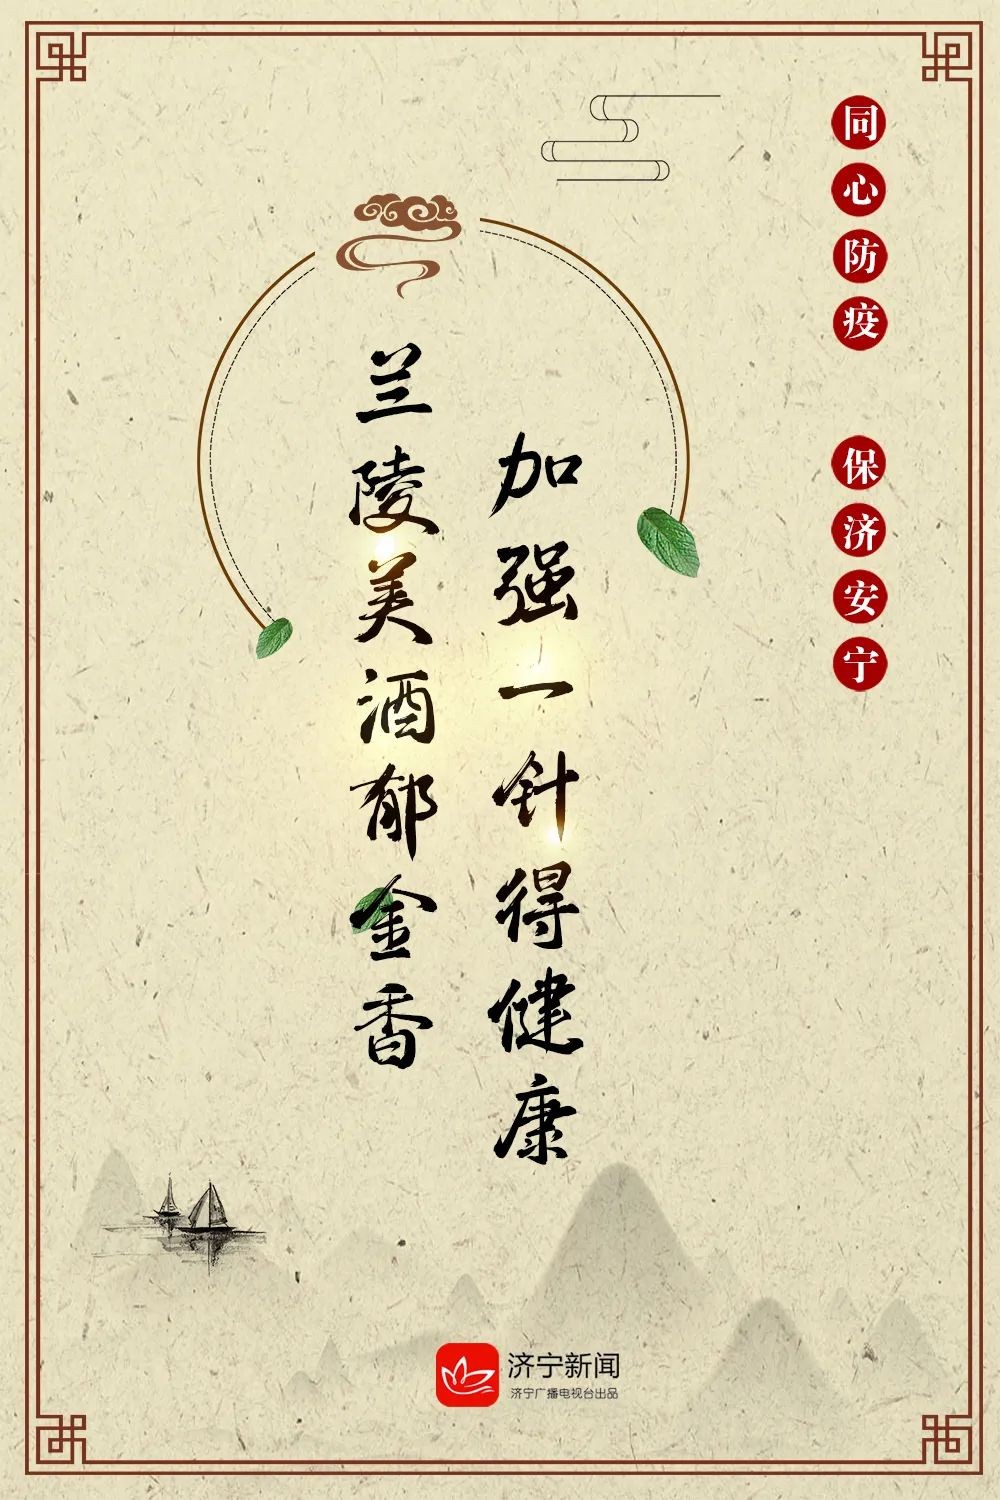 同心防疫 保济安宁
兰陵美酒郁金香
加强一针得健康
济宁新闻
济宁广播电视台出品